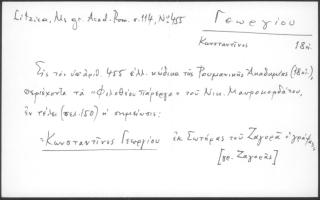 Litzica, Ms gr. Acad. Rom. σ. 114, Nº 455
Γεωργίου
Κωνσταντῖνος 18αι.
Εἰς τὸν ὑπ' ἀριθ. 455 ἑλλ. κώδικα τῆς Ρουμανικῆς Ἀκαδημίας (18αι.),
περιέχοντα τὰ «Φιλοθέου Πάρεργα» τοῦ Νικ. Μαυροκορδάτου,
ἐν τέλει (σελ. 150) ἡ σημείωσις:
«Κωνσταντῖνος Γεωργίου ἐκ Σωτήρας τοῦ Ζαγορᾶ ὁ γράψας
[γρ. Ζαγορᾶς]